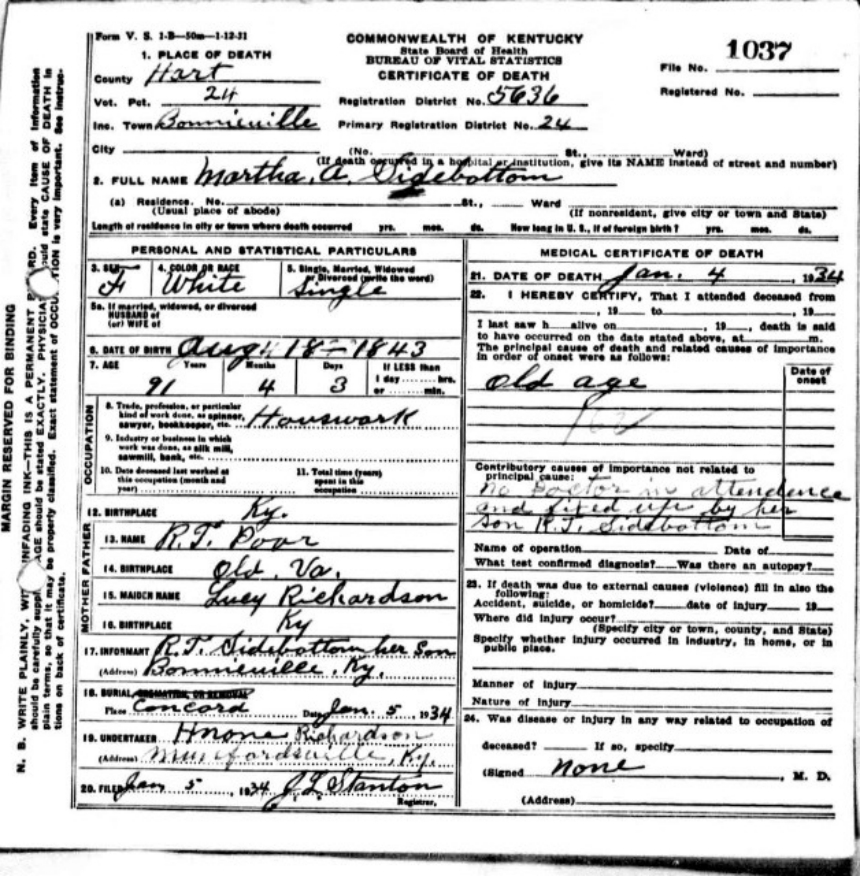 Form V. S. 1-B—50m—1-12-31
COMMONWEALTH OF KENTUCKY
State Board of Health
BUREAU OF VITAL STATISTICS
CERTIFICATE OF DEATH
File No. 1037
Registered No.
1. PLACE OF DEATH
County Hart
Vot. Pct. 24
Registration District No. 5636
Inc. Town Bonnieville
Primary Registration District No. 24
City (No. St., Ward)
(If death occurred in a hospital or institution, give its NAME instead of street and number)
2. FULL NAME Martha. A. Sidebottom
(a) Residence. No. St., Ward
(Usual place of abode) (If nonresident, give city or town and State)
Length of residence in city or town where death occurred yrs. mos. ds. How long in U. S., if of foreign birth? yrs. mos. ds.
PERSONAL AND STATISTICAL PARTICULARS
3. SEX F
4. COLOR OR RACE White
5. Single, Married, Widowed or Divorced (write the word) Single
5a. If married, widowed, or divorced
HUSBAND of
(or) WIFE of
6. DATE OF BIRTH Aug 18 - 1843
7. AGE Years Months Days If LESS than
91 4 3 1 day hrs.
or min.
OCCUPATION
8. Trade, profession, or particular
kind of work done, as spinner,
sawyer, bookkeeper, etc. Houswork
9. Industry or business in which
work was done, as silk mill,
sawmill, bank, etc.
10. Date deceased last worked at
this occupation (month and
year)
11. Total time (years)
spent in this
occupation
12. BIRTHPLACE Ky.
FATHER
13. NAME R.T. Poor
14. BIRTHPLACE Old Va.
MOTHER
15. MAIDEN NAME Lucy Richardson
16. BIRTHPLACE Ky
17. INFORMANT R.T. Sidebottom her Son
(Address) Bonnieville, Ky.
18. BURIAL, CREMATION, OR REMOVAL
Place Concord Date Jan. 5, 1934
19. UNDERTAKER Richardson
(Address) Munfordsville, Ky.
20. FILED Jan 5, 1934 J L Stanton
Registrar.
MEDICAL CERTIFICATE OF DEATH
21. DATE OF DEATH Jan. 4, 1934
22. I HEREBY CERTIFY, That I attended deceased from
, 19 to , 19
I last saw h alive on , 19 , death is said
to have occurred on the date stated above, at m.
The principal cause of death and related causes of importance
in order of onset were as follows:
Date of onset
old age
162
Contributory causes of importance not related to
principal cause:
no Doctor in attendence
and filed up by her
Son R.T. Sidebottom
Name of operation Date of
What test confirmed diagnosis? Was there an autopsy?
23. If death was due to external causes (violence) fill in also the
following:
Accident, suicide, or homicide? date of injury 19
Where did injury occur?
(Specify city or town, county, and State)
Specify whether injury occurred in industry, in home, or in
public place.
Manner of injury
Nature of injury
24. Was disease or injury in any way related to occupation of
deceased? If so, specify
(Signed none , M. D.
(Address)
MARGIN RESERVED FOR BINDING
N. B. WRITE PLAINLY, UNFADING INK—THIS IS A PERMANENT Every item of information
should be carefully AGE should be stated EXACTLY. state CAUSE OF DEATH in
plain terms, so that it may be properly classified. Exact statement of is very important. See
tions on back of certificate.